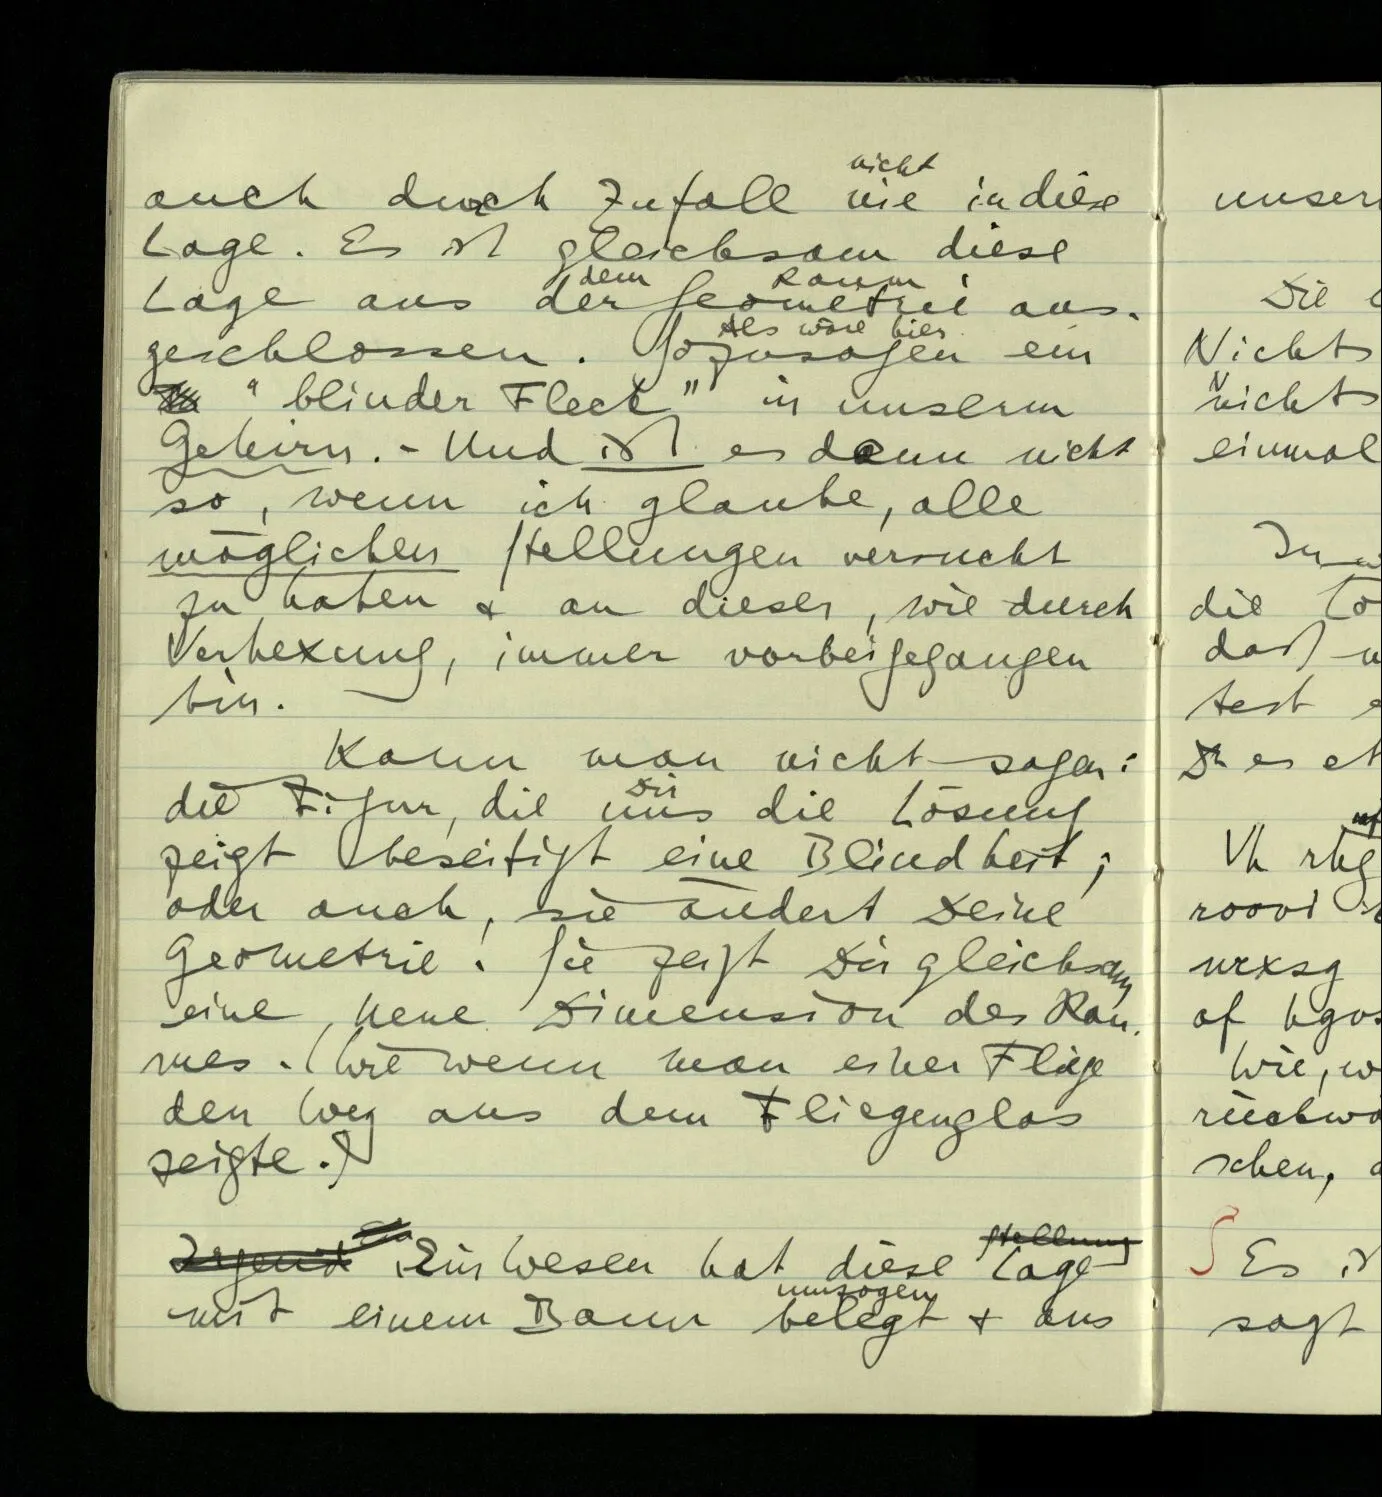 nicht
auch durch Zufall nie in diese
Lage. Es ist gleichsam diese
dem Raum
Lage aus der Geometrie aus-
Als wäre hier
geschlossen. Sozusagen ein
"blinder Fleck" in unserm
Gehirn. - Und ist es denn nicht
so, wenn ich glaube, alle
möglichen Stellungen versucht
zu haben & an dieser, wie durch
Verhexung, immer vorbeigegangen
bin.
Kann man nicht sagen:
Dir
die Figur, die uns die Lösung
zeigt beseitigt eine Blindheit;
oder auch, sie ändert Deine
Geometrie. Sie zeigt Dir gleichsam
eine neue Dimension des Rau-
mes. (Wie wenn man einer Fliege
den Weg aus dem Fliegenglas
zeigte.)
Stellung
Irgend Ein Wesen hat diese Lage
umzogen
mit einem Bann belegt & aus
unser
Die
Nichts
nichts
einmal
In
die Lö
daß
test
es et
Vh rhg
roovi
wrxsg
of
Wie, w
rückwä
schen,
Es
sagt